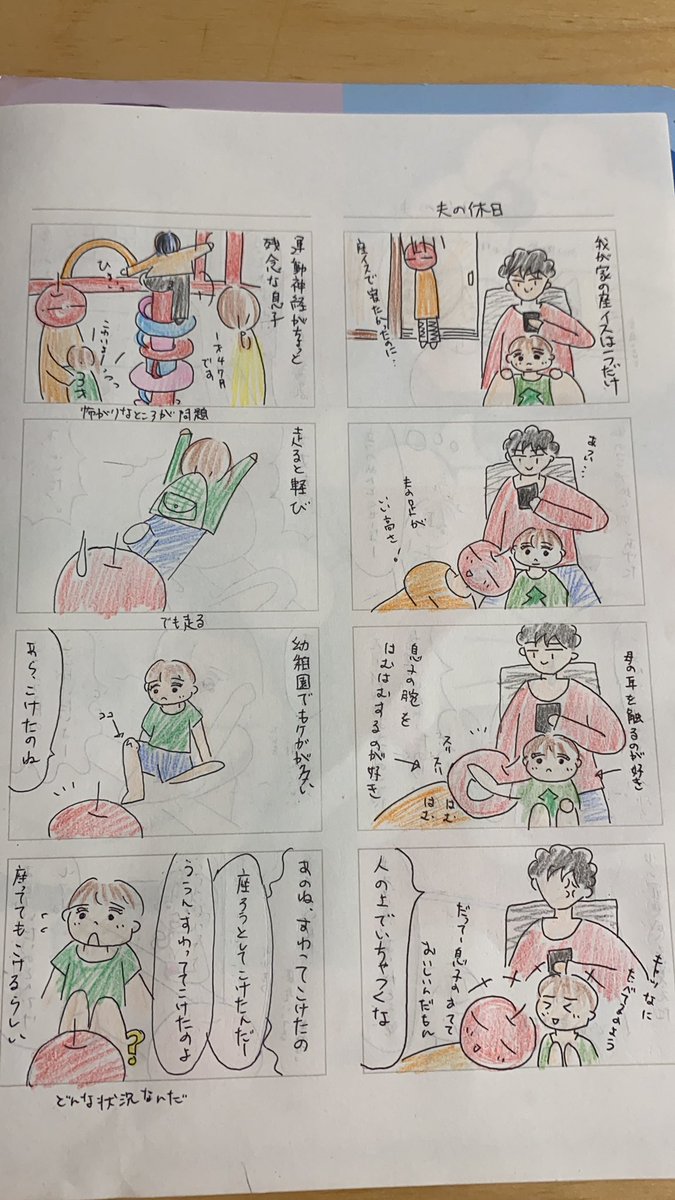 夫の休日
我が家の座イスは一つだけ
座イスで寝たかったのに…
あつい…
夫の足が
いい高さ！
母の耳を触るのが好き
スリスリ
息子の腕を
はむはむするのが好き
はむ
はむ
なに
だってー息子のおてて
おいしいんだもん
人の上でいちゃつくな
運動神経がちょっと
残念な息子
1才4ヶ月
です
3才
怖がりなところが問題
走ると転び
でも走る
幼稚園でもケガが多い
ココ
あら、こけたのね
あのね、すわってこけたの
座ろうとしてこけたんだー
ううん、すわっててこけたのよ
座っててもこけるらしい
どんな状況なんだ